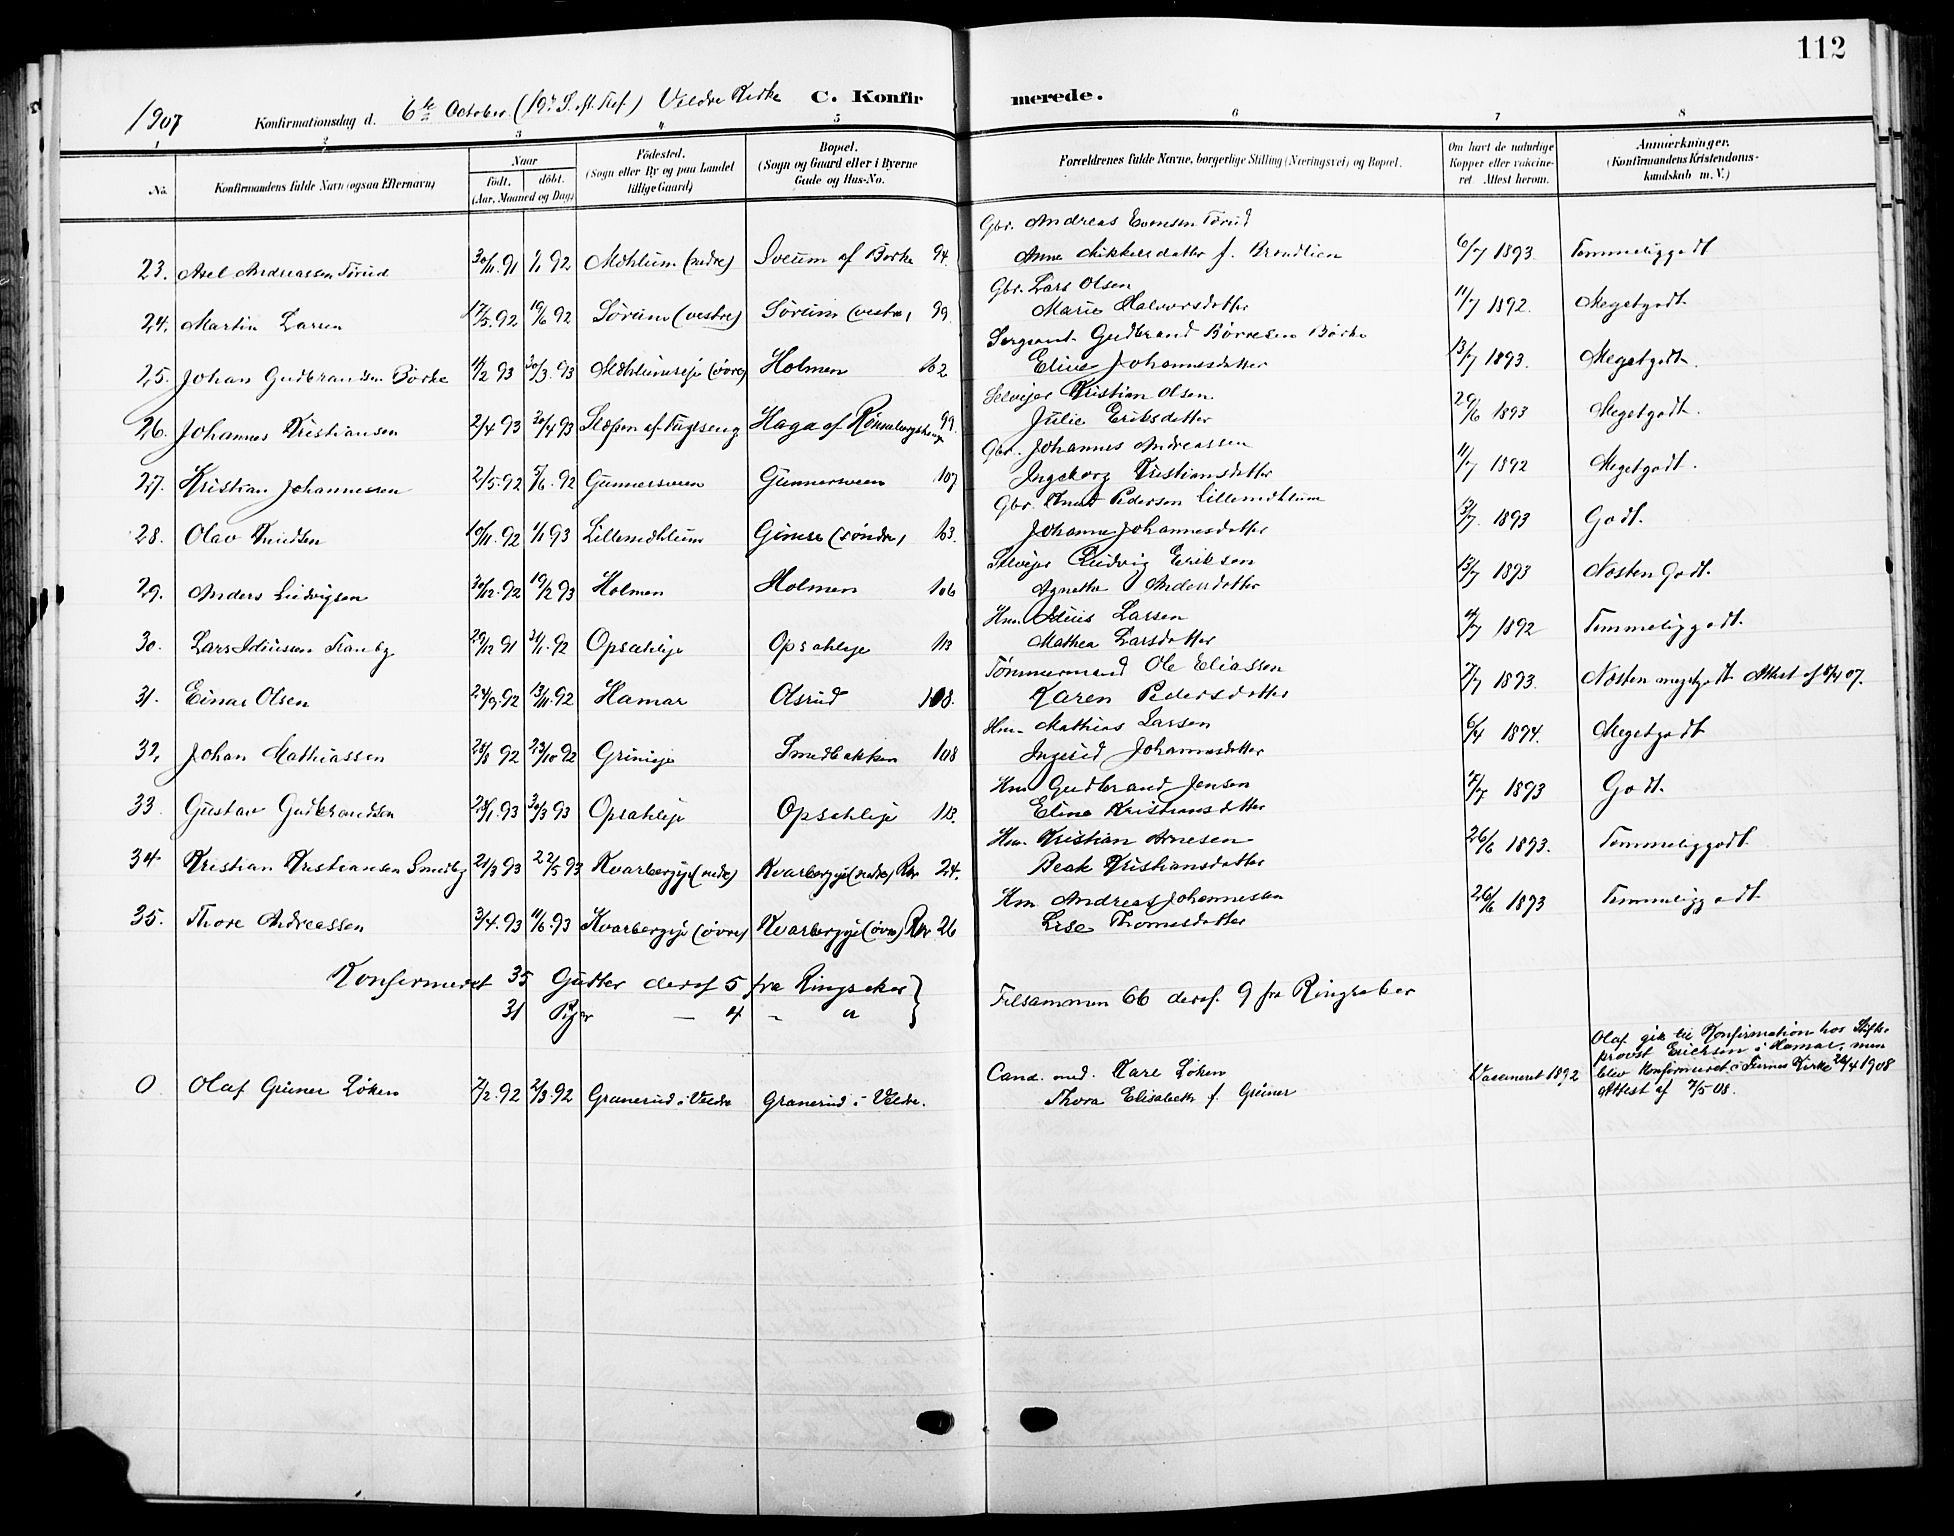 112
1907 Konfirmationsdag d. 6te October (19. S. eft. Tref.) Veldre Kirke C. Konfirmerede.
1 2 3 4 5 6 7 8
No. Konfirmandens fulde Navn (ogsaa Efternavn) Naar født. døbt. (Aar, Maaned og Dag) Fødested. (Sogn eller By og paa Landet tillige Gaard) Bopæl. (Sogn og Gaard eller i Byerne Gade og Hus-No. Forældrenes fulde Navne, borgerlige Stilling (Næringsvei) og Bopæl. Om havt de naturlige Kopper eller vaccineret Attest herom. Anmærkninger. (Konfirmandens Kristendomskundskab m. V.)
Gbr. Andreas Evensen Torud
23. Axel Andreassen Torud 30/11.91 1/1 92 Mæhlum (nedre) Sveum af Borke 94. Anne Mikkelsdatter f. Brendlien 6/7 1893 Temmeliggodt
Gbr. Lars Olsen
24. Martin Larsen 17/5.92 19/6 92 Sørum (vestre) Sørum (vestre) 99. Marie Halvorsdatter 11/7 1892. Megetgodt
Sergeant Gudbrand Børresen Børke
25. Johan Gudbrandsen Børke 11/2 93 30/3.93 Mæhlumseje (øvre) Holmen 102 Eline Johannesdatter 13/7 1893. Megetgodt.
Selvejer Kristian Olsen.
26. Johannes Kristiansen 2/4 93 30/4 93 Støpen af Fuglseng Haga af 99. Julie Eriksdatter 29/6 1893 Megetgodt.
Gbr. Johannes Andreassen
27. Kristian Johannessen 2/5.92 5/6.92 Gunnersveen Gunnersveen 107 Ingeborg Kristiansdatter 11/7 1892 Megetgodt.
Gbr. Knut Pedersen Lillemæhlum
28. Olav Knudsen 10/11.92 1/1 93 Lillemæhlum Gimse (søndre) 103. Johanne Johannesdatter 13/7. 1893 Godt.
Selvejer Ludvig Eriksen
29. Anders Ludvigsen 30/12.92 19/2 93 Holmen Holmen 106 Agnethe Andersdatter 13/7 1893 Næsten Godt.
Hm. Edius Larsen
30. Lars Ediussen Tranby 29/12 91 31/1.92 Opsahleje Opsahleje 113 Mathea Larsdatter 11/7 1892 Temmeliggodt.
Tømmermand Ole Eliassen
31. Einar Olsen 24/9.92 13/11.92 Hamar Olsrud 108. Karen Pedersdatter 7/7 1893. Næsten megetgodt Attest af 8/4 07.
Hm. Mathias Larsen
32. Johan Mathiassen 23/8 92 23/10 92 Grimeje Smedbakken 108 Ingerid Johannesdatter 6/4 1894. Megetgodt
Hm. Gudbrand Jensen
33. Gustav Gudbrandsen 28/1.93 30/3 93 Opsahleje Opsahleje 113. Eline Kristiansdatter 7/7 1893 Godt.
Hm. Kristian Arnesen
34. Kristian Kristiansen Smedby 21/3 93 22/5 93 Kvarbergeje (nedre) Kvarbergeje (nedre) Rkr 24. Beate Kristiansdatter 26/6 1893. Temmeliggodt.
Hm. Andreas Johannesen
35. Thore Andreassen 3/4.93 11/6.93 Kvarbergeje (øvre) Kvarbergeje (øvre) Rkr. 26 Lise Thomasdatter 26/6 1893 Temmeliggodt.
Konfirmeret 35 Gutter deraf 5 fra Ringsaker }
31 Piger — 4 - " }
Tilsammen 66 deraf. 9 fra Ringsaker
0 Olaf Greiner Løken 7/2.92 21/3.92 Granerud i Veldre Granerud i Veldre. Cand. med. Karl Løken
Thora Elisabeth f. Greiner Vaccineret 1892
Olaf gik til Konfirmation hos Stifts-
provst Erichsen i Hamar, men
blev konfirmeret i Furnes Kirke 26/4 1908
Attest af 7/5 08.